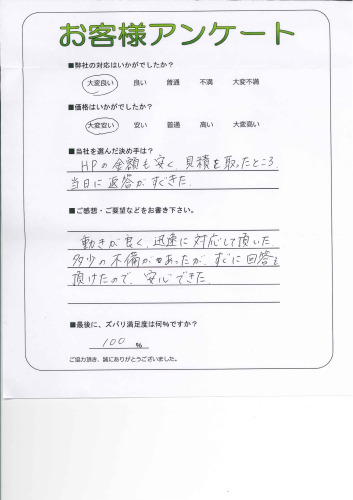 お客様アンケート
■弊社の対応はいかがでしたか?
大変良い 良い 普通 不満 大変不満
■価格はいかがでしたか?
大変安い 安い 普通 高い 大変高い
■当社を選んだ決め手は?
HPの金額も安く、見積を取ったところ
当日に返答がすぐきた.
■ご感想・ご要望などをお書き下さい。
動きが良く、迅速に対応して頂いた.
多少の不備があったが、すぐに回答を
頂けたので、安心できた.
■最後に、ズバリ満足度は何%ですか?
100 %
ご協力頂き、誠にありがとうございました。